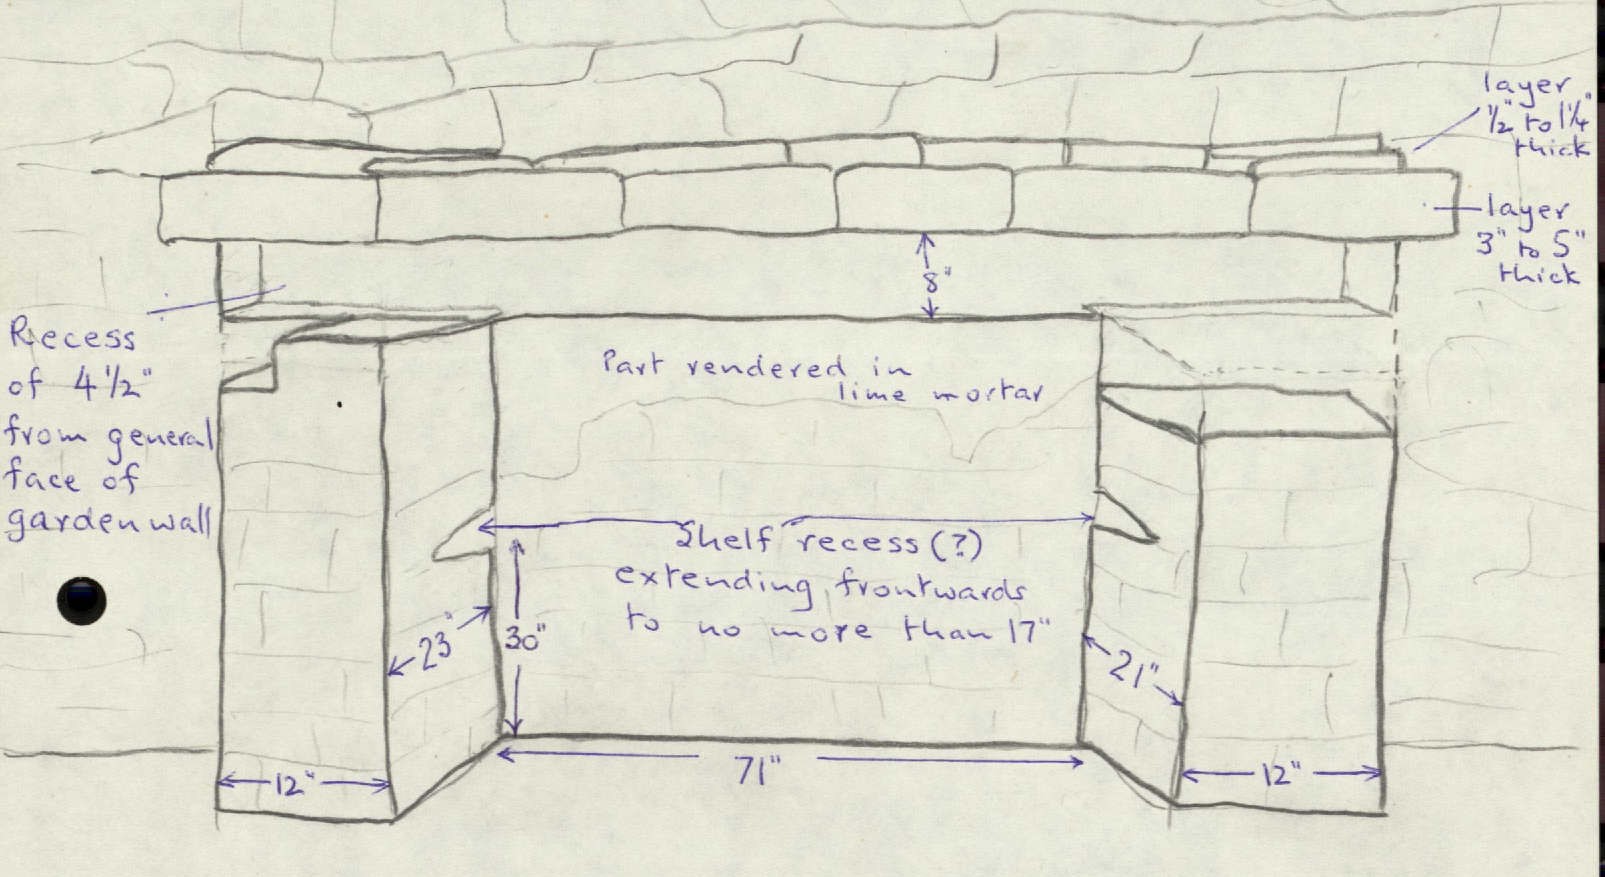 layer
1/2" to 1 1/4"
thick
layer
3" to 5"
thick
8"
Recess
of 4 1/2"
from general
face of
garden wall
Part rendered in
lime mortar
Shelf recess (?)
extending frontwards
to no more than 17"
23"
30"
21"
12"
71"
12"